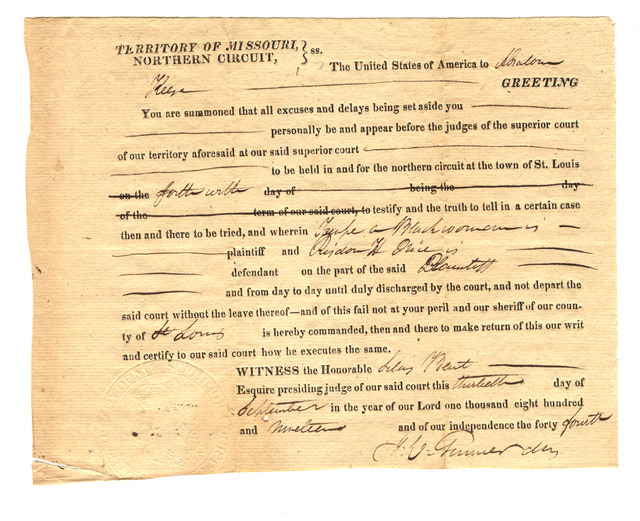 TERRITORY OF MISSOURI, } ss.
NORTHERN CIRCUIT,
The United States of America to Absalom
Keese GREETING
You are summoned that all excuses and delays being set aside you
personally be and appear before the judges of the superior court
of our territory aforesaid at our said superior court
to be held in and for the northern circuit at the town of St. Louis
on the forthwith day of being the day
of the term of our said court, to testify and the truth to tell in a certain case
then and there to be tried, and wherein a Black woman is
plaintiff and Risdon H Price is
defendant on the part of the said Plaintiff
and from day to day until duly discharged by the court, and not depart the
said court without the leave thereof—and of this fail not at your peril and our sheriff of our coun-
ty of St Louis is hereby commanded, then and there to make return of this our writ
and certify to our said court how he executes the same.
WITNESS the Honorable Silas Bent
Esquire presiding judge of our said court this thirtieth day of
September in the year of our Lord one thousand eight hundred
and nineteen and of our independence the forty fourth